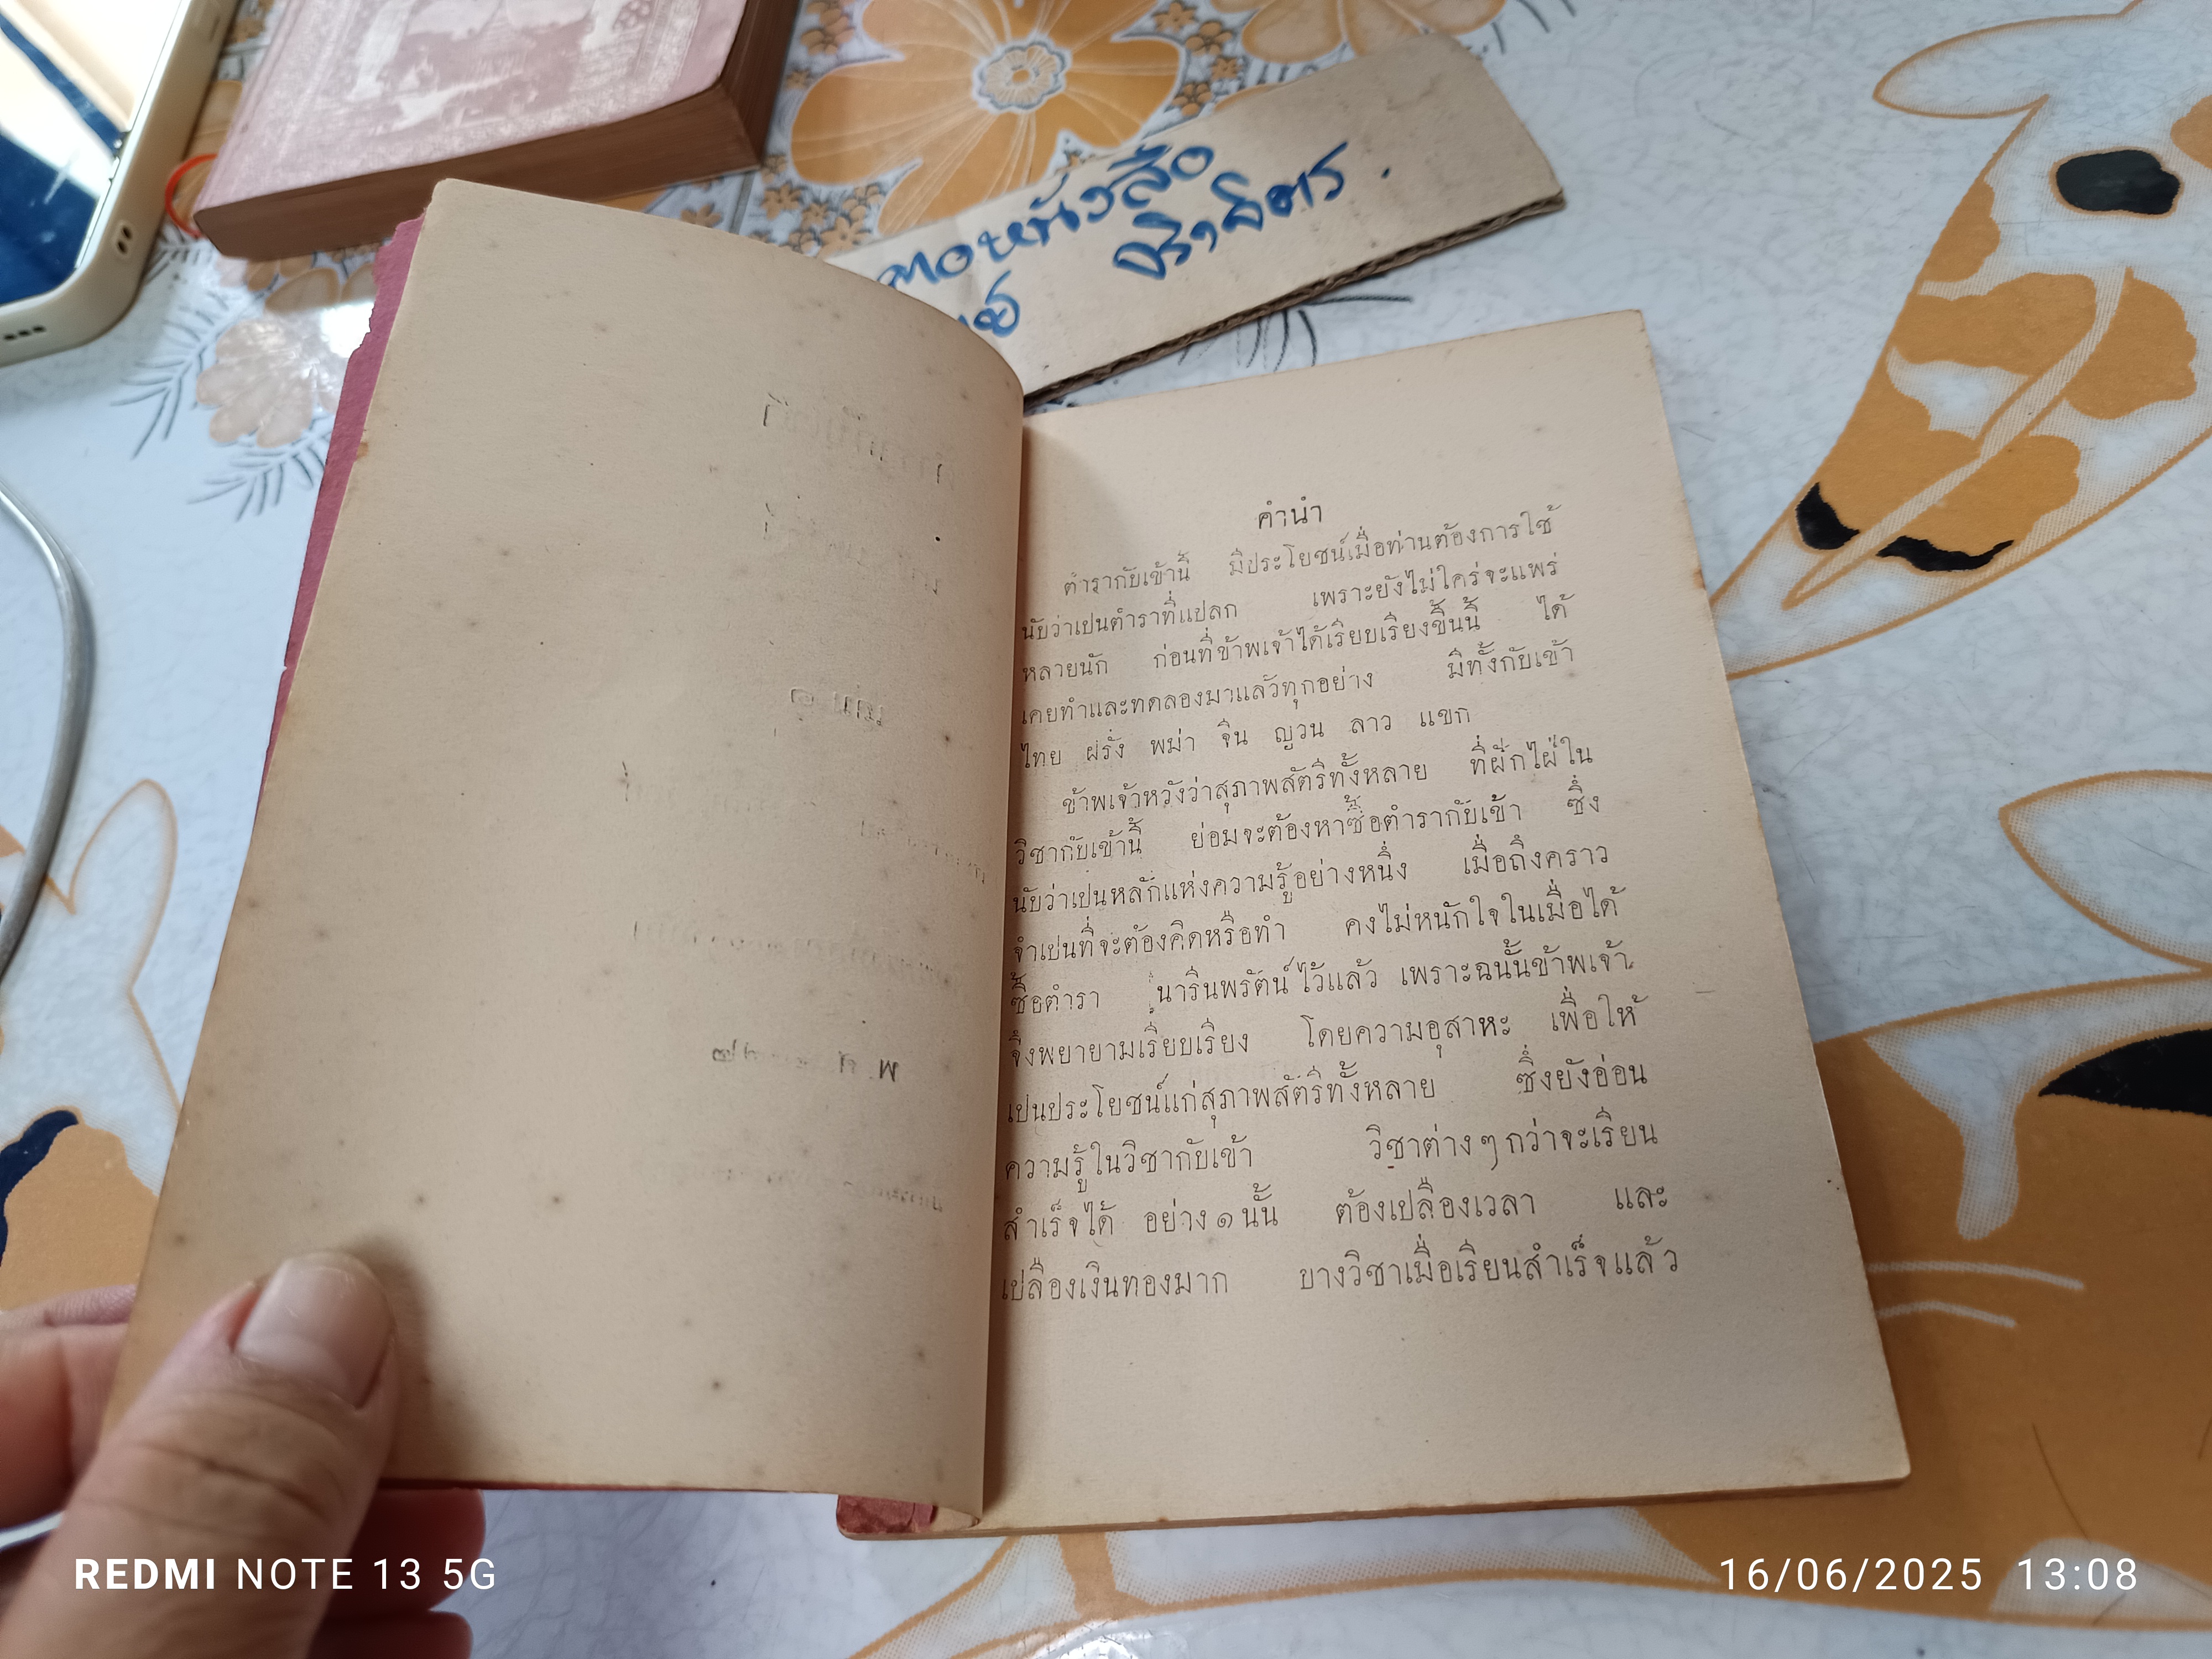 คำนำ
ตำรากับเข้านี้ มีประโยชน์เมื่อท่านต้องการใช้
นับว่าเปนตำราที่แปลก เพราะยังไม่ใคร่จะแพร่
หลายนัก ก่อนที่ข้าพเจ้าได้เรียบเรียงขึ้นนี้ ได้
เคยทำและทดลองมาแล้วทุกอย่าง มีทั้งกับเข้า
ไทย ฝรั่ง พม่า จีน ญวน ลาว แขก
ข้าพเจ้าหวังว่าสุภาพสัตรีทั้งหลาย ที่ฝักไฝ่ใน
วิชากับเข้านี้ ย่อมจะต้องหาซื้อตำรากับเข้า ซึ่ง
นับว่าเปนหลักแห่งความรู้อย่างหนึ่ง เมื่อถึงคราว
จำเปนที่จะต้องคิดหรือทำ คงไม่หนักใจในเมื่อได้
ซื้อตำรา นารีนพรัตน์ไว้แล้ว เพราะฉนั้นข้าพเจ้า
จึงพยายามเรียบเรียง โดยความอุสาหะ เพื่อให้
เปนประโยชน์แก่สุภาพสัตรีทั้งหลาย ซึ่งยังอ่อน
ความรู้ในวิชากับเข้า วิชาต่างๆกว่าจะเรียน
สำเร็จได้ อย่าง๑นั้น ต้องเปลืองเวลา และ
เปลืองเงินทองมาก บางวิชาเมื่อเรียนสำเร็จแล้ว
REDMI NOTE 13 5G
16/06/2025 13:08